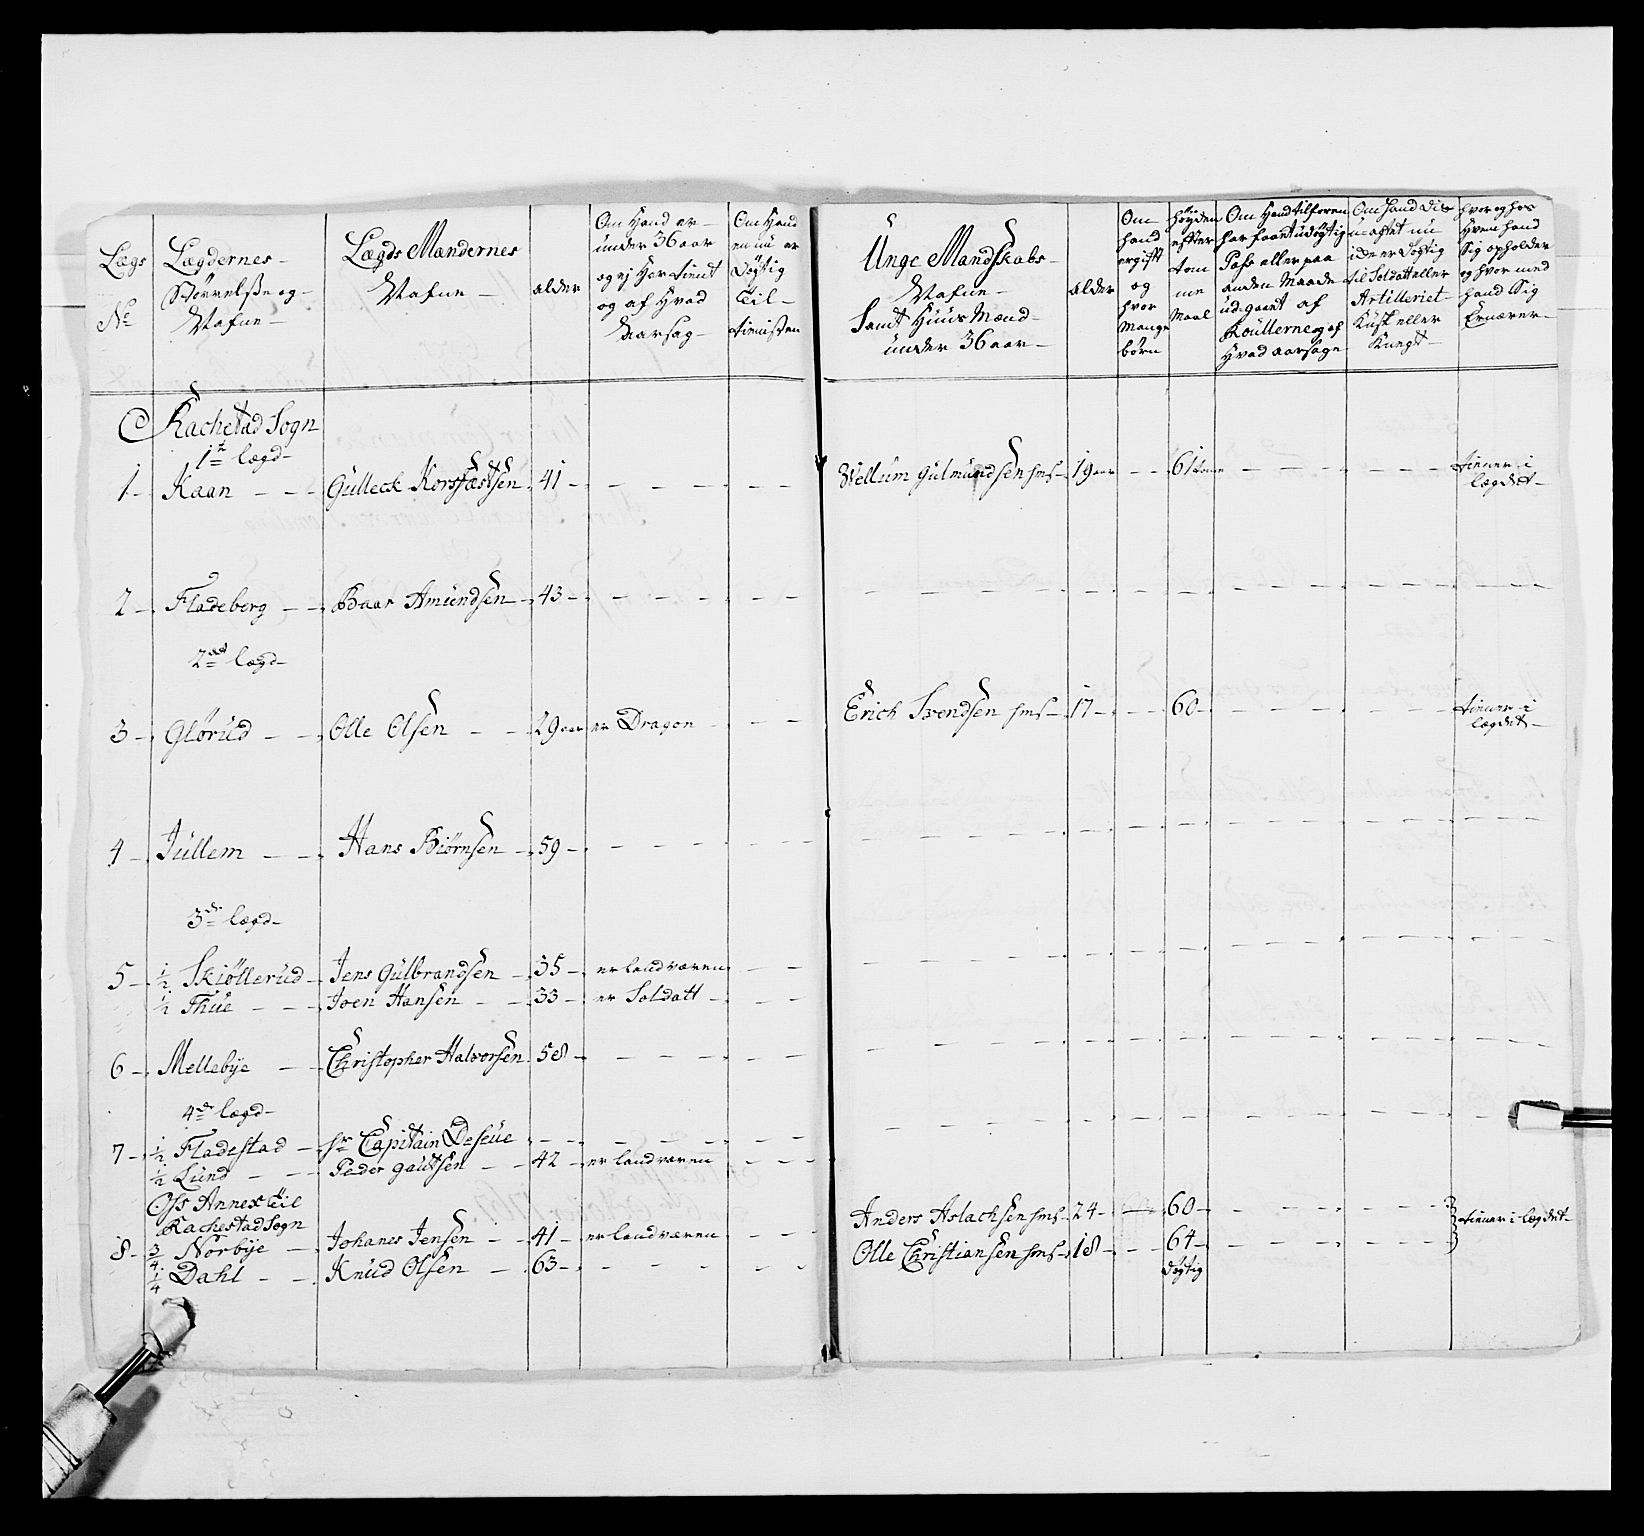 Lægs
No
Lægdernes
Størrelsse og
Nafne
Lægds Mandernes
Nafne
alder
Om Hand er
under 36 aar
og ej Har tient
og af Hvad
Aarsag
Om Hand
en nu er
Døgtig
Til
tienisten
Unge Mandskabs
Nafne
Samt Huus Mænd
under 36 aar
alder
Om
hand
er gift
og
hvor
Mange
børn
høyden
efter
tom
me
Maal
Om Hand tilforen
har faaet udøgtig
Pass eller paa
anden Maade
udgaaet af
Roullerne og af
Hvad aarsage
Om hand
nu
er Døgtig
til Soldatt eller
Artilleriet
Kusk eller
Knegt
hvor og hos
Hvem hand
Sig opholder
og hvor med
hand Sig
Ernærer
Rachestad Sogn
1te lægd
1 Kaan Gulleck Korsfastsen 41 Wellum Gulmundsen hmf 19 aar 61 tiener i
lægdet
2 Fladeberg Baar Amundsen 43
2det lægd
3 Glørud Olle Olsen 29 aar er Dragon Erich Svendsen hmf 17 60 tiener i
lægdet
4 Jullem Hans Biørnsen 59
3de lægd
5 1/2 Skiøllerud Jens Gulbrandsen 35 er landværen
1/2 Thue Joen Hansen 33 er Soldatt
6 Mellebye Christopher Halvorsen 58
4de lægd
7 1/2 Fladestad Hr Capitain Deseue
1/2 Lund Peder Gautsen 42 er landværen
Oss Annex Til
Rachestad Sogn Anders Aslachsen hmf 24 60 tiener i lægdet
8 3/4 Norbye Johanes Jensen 41 er landværen Olle Christiansen hmf 18 64
1/4 Dahl Knud Olsen 63 Døgtig